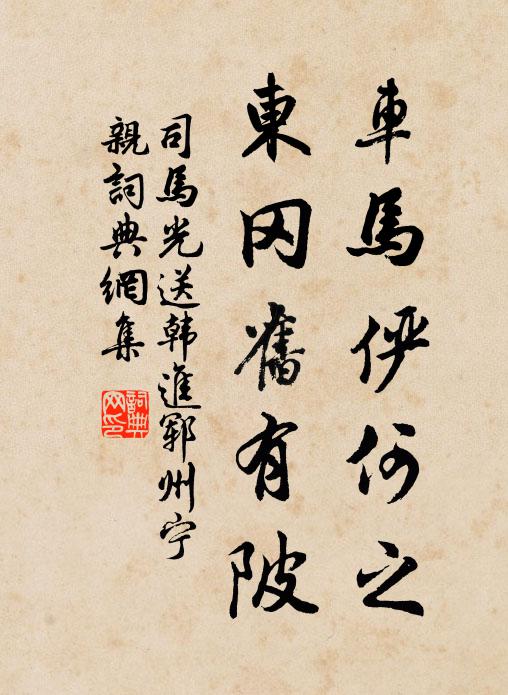 車馬俨何之
東冈舊有陂
司馬光送韩進郓州宁
親詞典網集
詞典网印